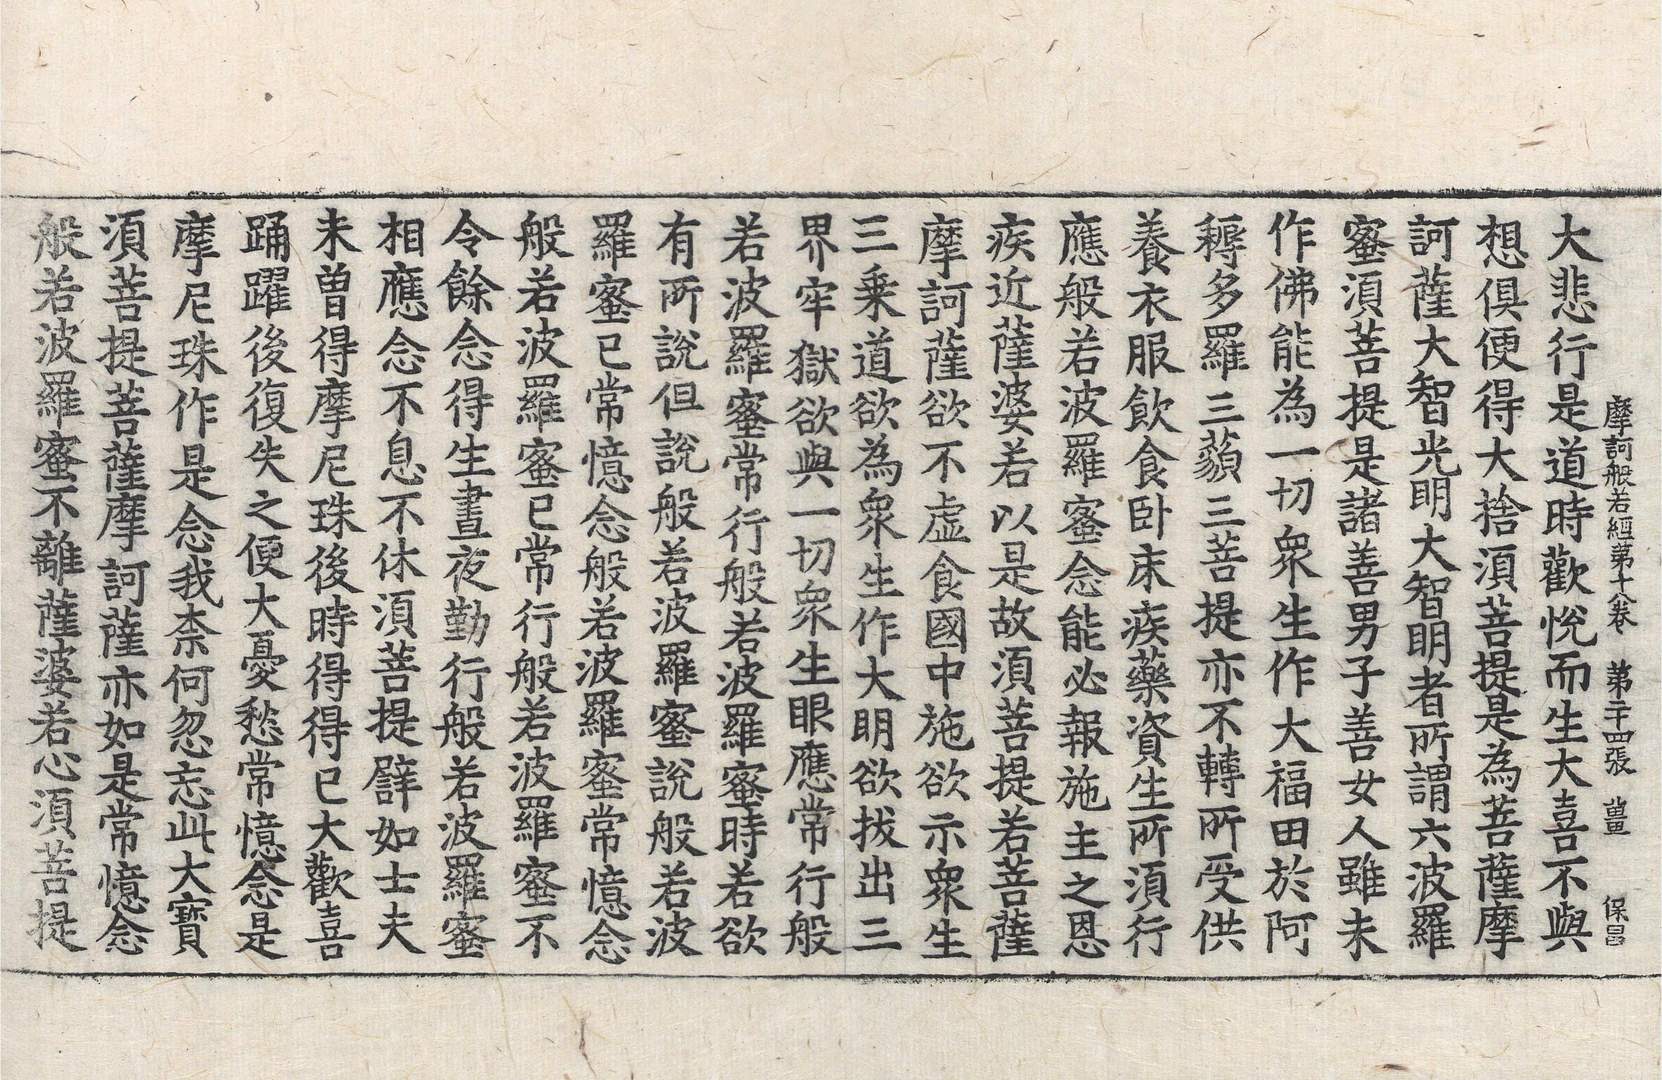 摩訶般若經第十八卷 第二十四張 畺 保昌
大悲行是道時歡悅而生大喜不與
想俱便得大捨須菩提是為菩薩摩
訶薩大智光明大智明者所謂六波羅
蜜須菩提是諸善男子善女人雖未
作佛能為一切衆生作大福田於阿
耨多羅三藐三菩提亦不轉所受供
養衣服飮食卧床疾藥資生所須行
應般若波羅蜜念能必報施主之恩
疾近薩婆若以是故須菩提若菩薩
摩訶薩欲不虛食國中施欲示衆生
三乗道欲為衆生作大明欲拔出三
界牢獄欲與一切衆生眼應常行般
若波羅蜜常行般若波羅蜜時若欲
有所說但說般若波羅蜜說般若波
羅蜜已常憶念般若波羅蜜常憶念
般若波羅蜜已常行般若波羅蜜不
令餘念得生晝夜勤行般若波羅蜜
相應念不息不休須菩提譬如士夫
未曾得摩尼珠後時得得已大歡喜
踊躍後復失之便大憂愁常憶念是
摩尼珠作是念我柰何忽忘此大寶
須菩提菩薩摩訶薩亦如是常憶念
般若波羅蜜不離薩婆若心須菩提